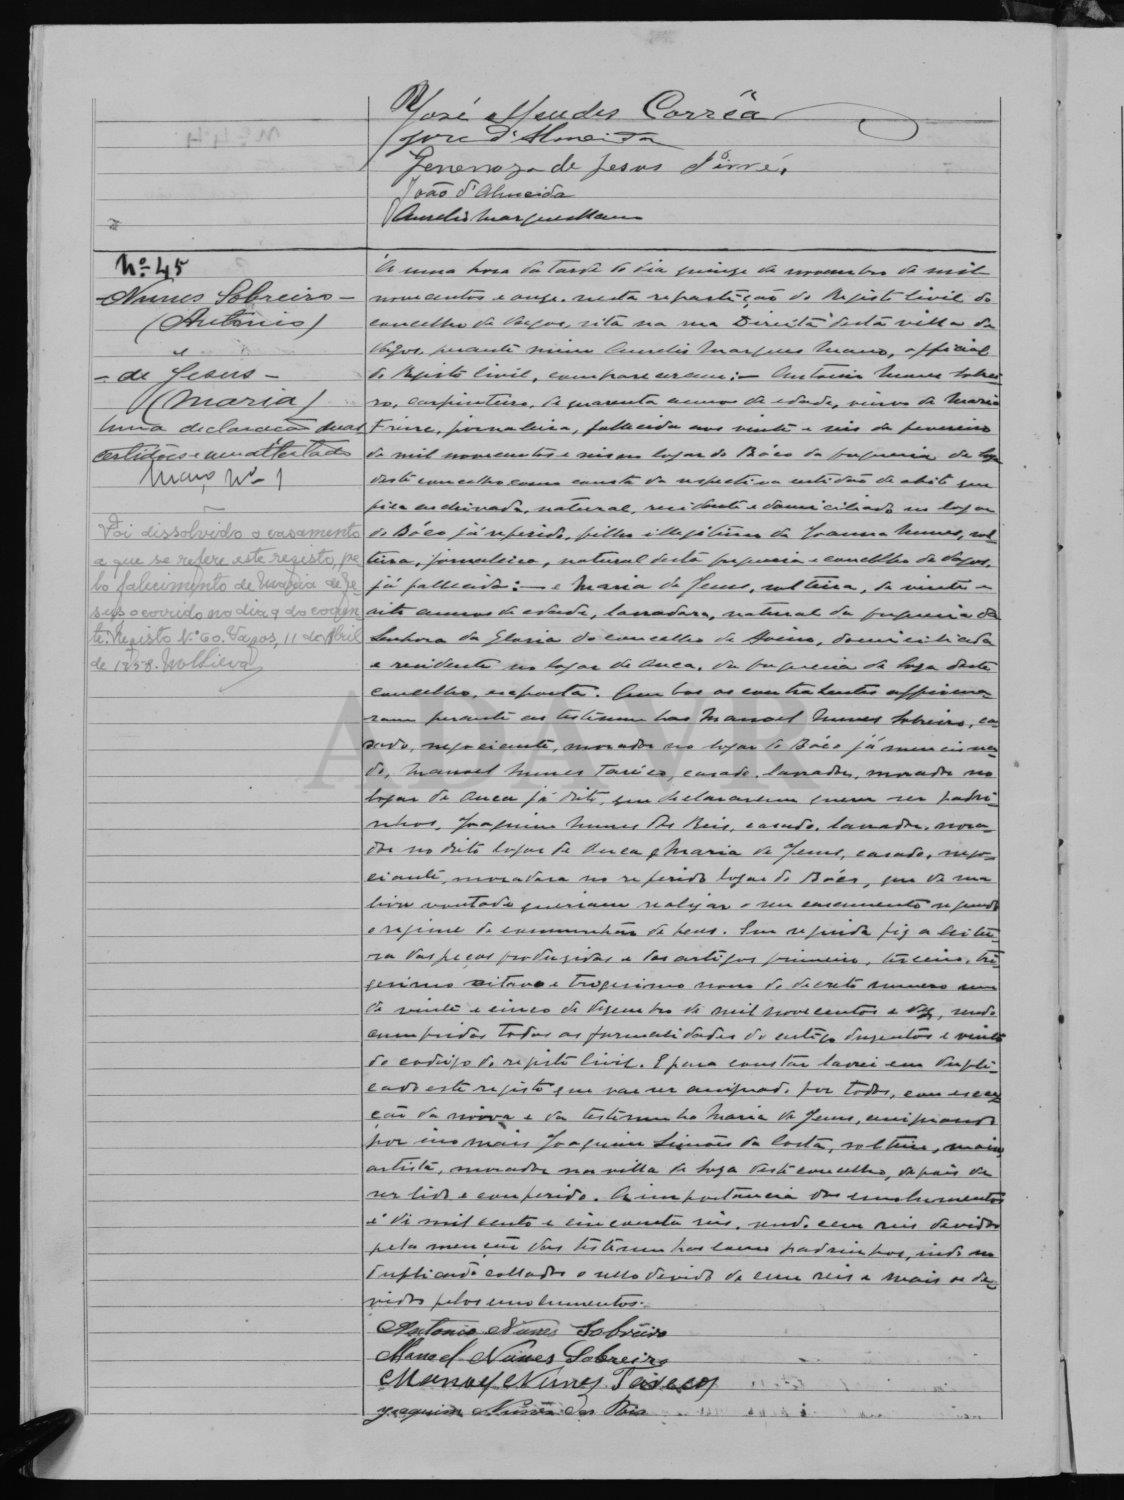 José Mendes Corrêa
José d'Almeida
Generoza de Jesus
João d'Almeida
Aurelio Marques Mano
Nº 45
Nunes Sobreiro
(Antonio)
e
de Jesus
(Maria)
Uma declaração duas
certidões e um attestado
Maço Nº 1
Foi dissolvido o casamento
a que se refere este registo, pe-
lo falecimento de Maria de Je-
sus ocorrido no dia 9 do corren-
te. Registo Nº 60. Vagos, 11 de Abril
de 1958.
Á uma hora da tarde do dia quinze de novembro de mil
novecentos e onze, nesta repartição do Registo Civil do
concelho de Vagos, sita na rua Direita desta villa de
Vagos, perante mim Aurelio Marques Mano, official
do Registo Civil, compareceram: — Antonio Nunes Sobrei-
ro, carpinteiro, de quarenta annos de edade, viuvo de Maria
Freire, jornaleira, fallecida aos vinte e seis de fevereiro
de mil novecentos e seis no logar do Bôco da freguezia de Soza
deste concelho como consta da respectiva certidão de obito que
fica archivada, natural, residente e domiciliado no logar
do Bôco já referido, filho illegitimo de Joanna Nunes, sol-
teira, jornaleira, natural desta freguezia e concelho de Vagos,
já fallecida: — e Maria de Jesus, solteira, de vinte e
oito annos de edade, lavradora, natural da freguezia da
Senhora da Gloria do concelho de Aveiro, domiciliada
e residente no logar de Ouca, da freguezia de Soza deste
concelho, exposta. Ambos os contrahentes affirma-
ram perante as testemunhas Manoel Nunes Sobreiro, ca-
sado, negociante, morador no logar do Bôco já menciona-
do, Manoel Nunes casado, lavrador, morador no
logar de Ouca já dito, que declararam querer ser padri-
nhos, Joaquim Nunes dos Reis, casado, lavrador, mora-
dor no dito logar de Ouca e Maria de Jesus, casada, nego-
ciante, moradora no referido logar do Bôco, que de sua
livre vontade queriam realizar o seu casamento segundo
o regime de communhão de bens. Em seguida fiz a leitu-
ra das peças produzidas e dos artigos primeiro, terceiro, tri-
gesimo oitavo e trigesimo nono do decreto numero um
de vinte e cinco de dezembro de mil novecentos e dez, sendo
cumpridas todas as formalidades do artigo duzentos e vinte
do codigo do registo civil. E para constar lavrei em dupli-
cado este registo que vae ser assignado por todos, com excep-
ção da noiva e da testemunha Maria de Jesus, assignando
por isso mais Joaquim Simões da Costa, solteiro, maior,
artista, morador na villa de Soza deste concelho, depois de
ser lido e conferido. A importancia dos emolumentos
é de mil cento e cincoenta reis, sendo cem reis devidos
pela menção das testemunhas como padrinhos, indo no
duplicado collado o sello devido de cem reis e mais os de-
vidos pelos emolumentos.
Antonio Nunes Sobreiro
Manoel Nunes Sobreiro
Manoel Nunes
Joaquim Nunes dos Reis
ADAVR